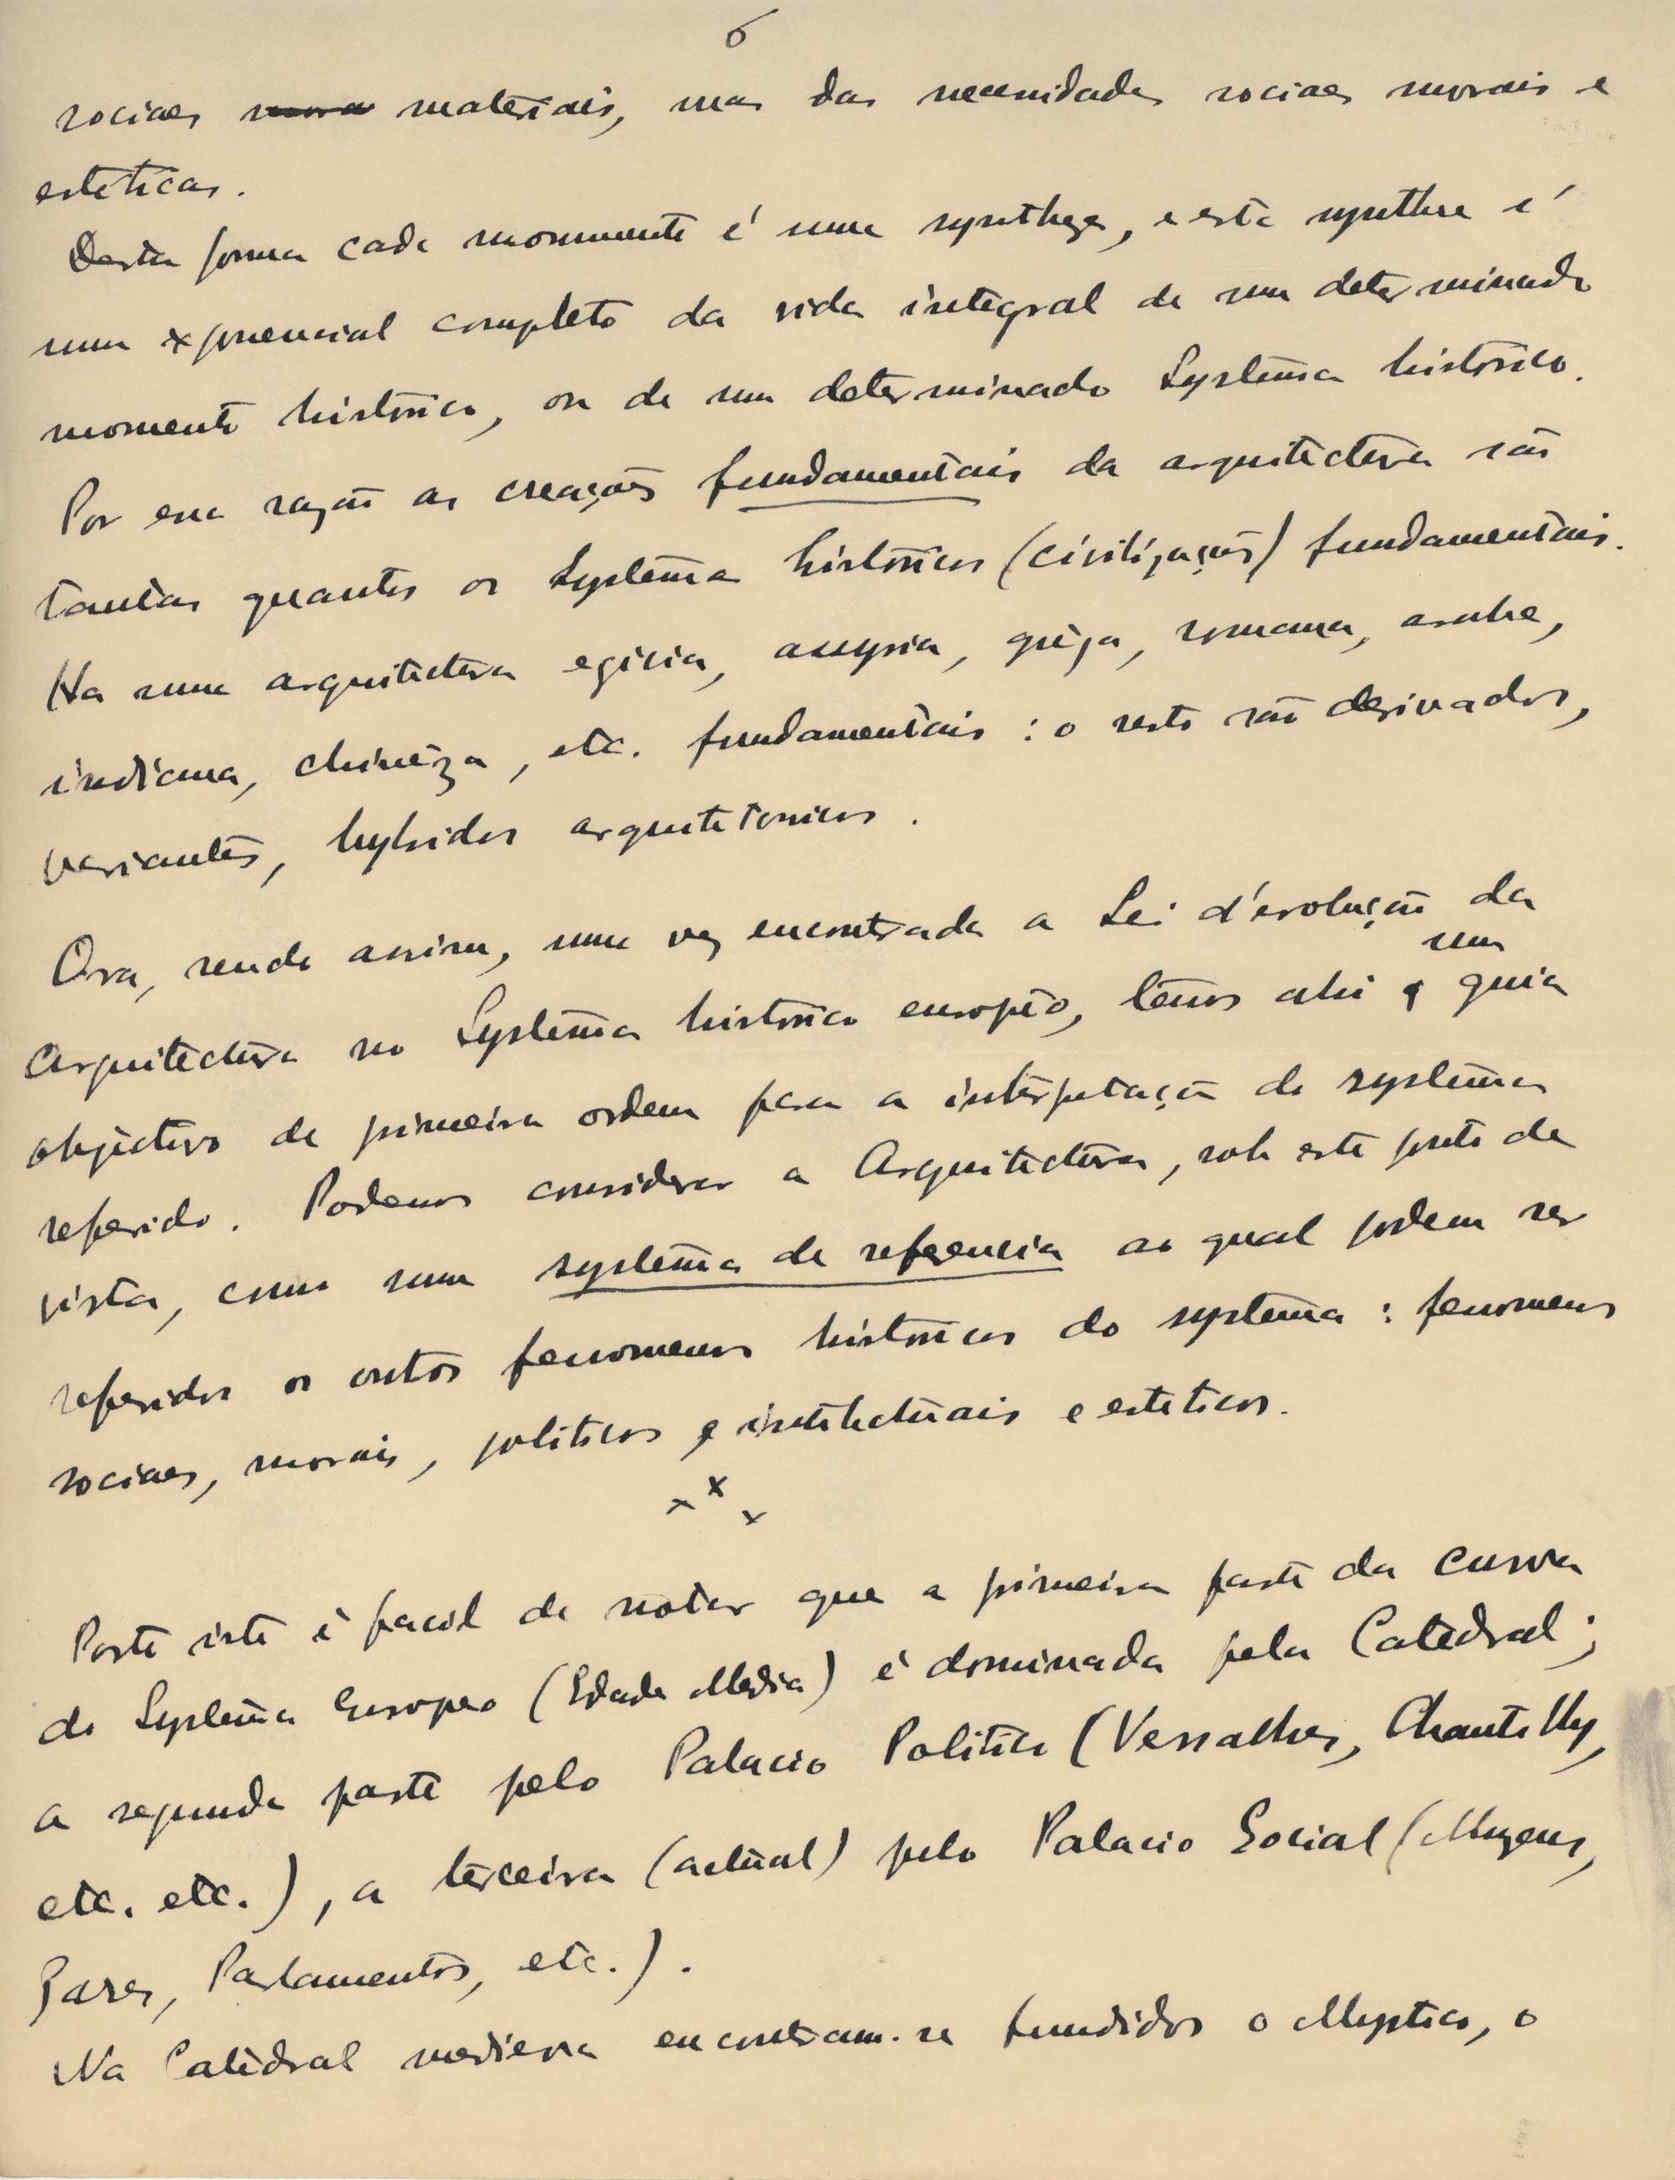 6
sociaes mora materiais, mas das necessidades sociaes morais e
esteticas.
Desta forma cada monumento é uma synthese, e esta synthese é
um exponencial completo da vida integral de um determinado
momento historico, ou de um determinado Systema historico.
Por essa razão as creações fundamentais da arquitectura são
tantas quantos os Systemas historicos (civilizações) fundamentais.
Ha uma arquitectura egicia, assyria, grega, romana, arabe,
indiana, chineza, etc. fundamentais: o resto são derivados,
variantes, hybridos arquitetonicos.
Ora, sendo assim, uma vez encontrada a Lei d'evolução da
um
Arquitectura no Systema historico europeo, temos ahi guia
objectivo de primeira ordem para a interpretação do systema
referido. Podemos considerar a Arquitectura, sob este ponto de
vista, como um systema de referencia ao qual podem ser
referidos os outros fenomenos historicos do systema: fenomenos
sociaes, morais, politicos e intelectuais e esteticos.
x x x
Posto isto é facil de notar que a primeira parte da curva
do Systema Europeo (Edade Media) é dominada pela Catedral;
a segunda parte pelo Palacio Politico (Versalhes, Chantilly,
etc. etc.), a terceira (actual) pelo Palacio Social (Muzeus,
Gares, Parlamentos, etc.).
Na Catedral medieva encontram-se fundidos o Mystico, o